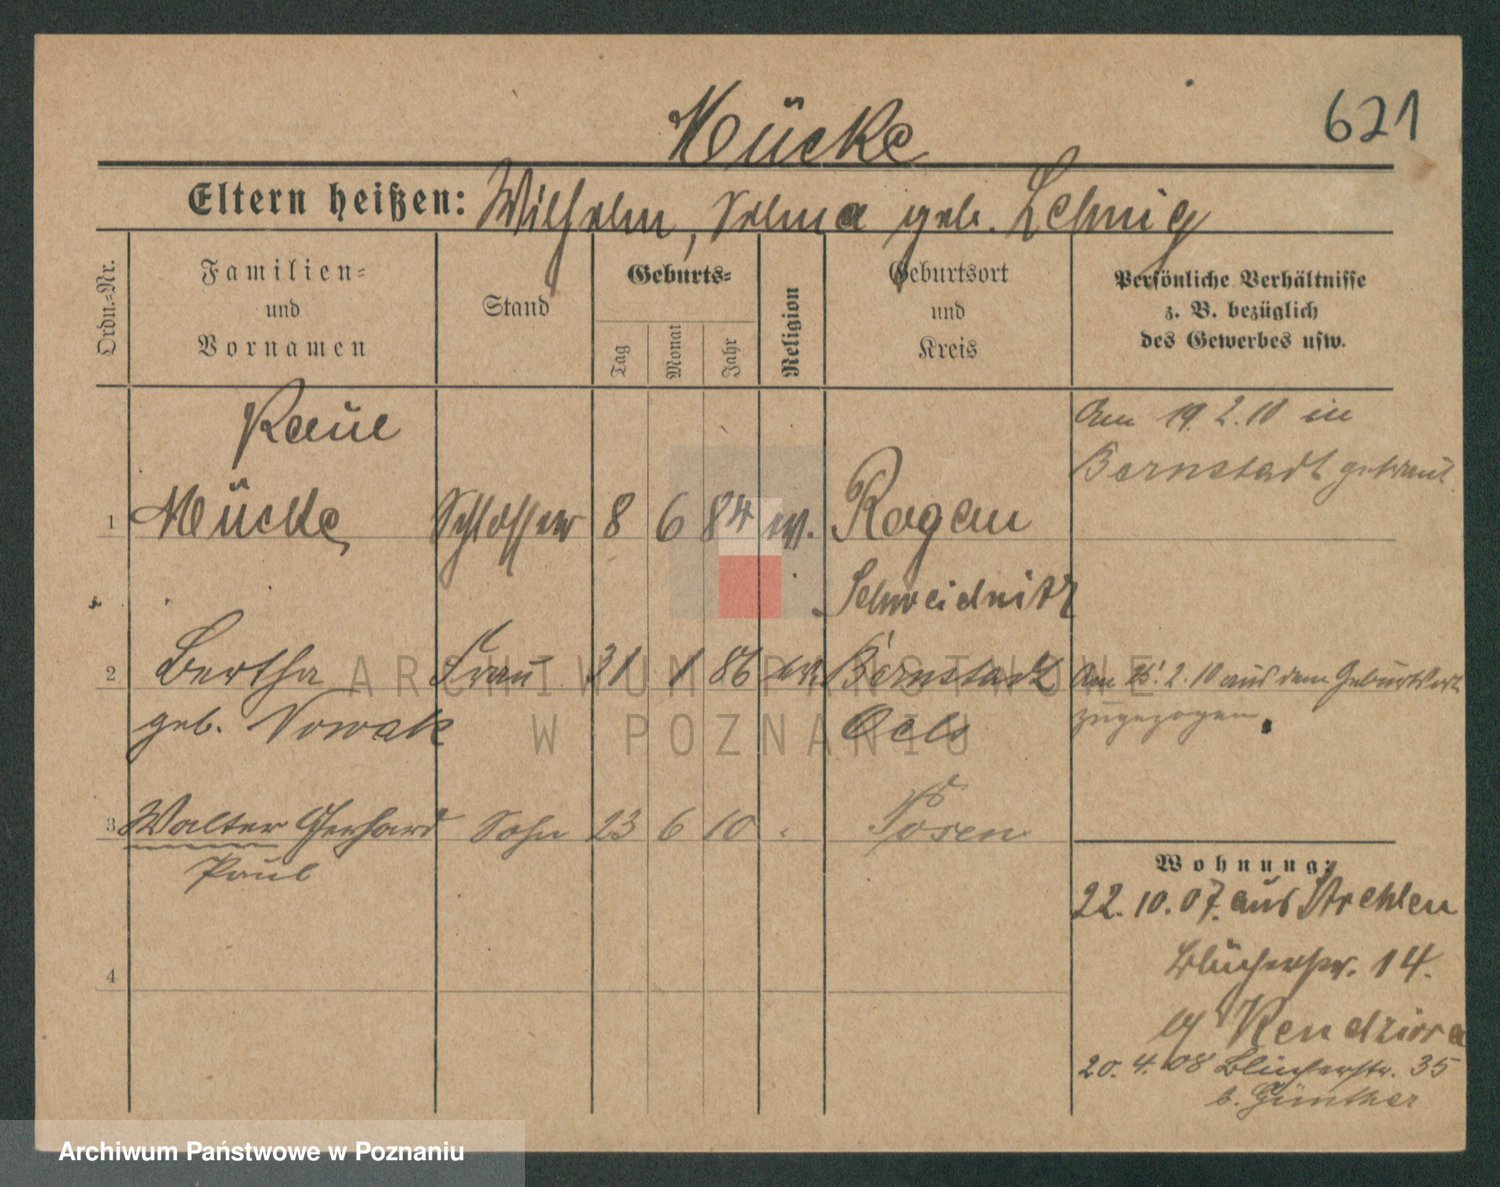 621
Mücke
Eltern heißen: Wilhelm, Selma geb. Lehnig
Ordn.-Nr.
Familien- und Vornamen
Stand
Geburts-
Tag
Monat
Jahr
Religion
Geburtsort und Kreis
Persönliche Verhältnisse z. B. bezüglich des Gewerbes usw.
Paul
1 Mücke, Schlosser 8 6 84 ev. Rogau
Schweidnitz
Am 19.2.10 in
Bernstadt getraut.
2 Bertha Frau 31 1 86 ev. Bernstadt
geb. Nowak Oels
Am 25.2.10 aus dem Geburtsort
zugezogen.
3 Walter Gerhard Sohn 23 6 10 Posen
Paul
4
Wohnung:
22.10.07. aus Strehlen
Blücherstr. 14.
Kendziora
20.4.08 Blücherstr. 35
b. Günther
ARCHIWUM PAŃSTWOWE
W POZNANIU
Archiwum Państwowe w Poznaniu